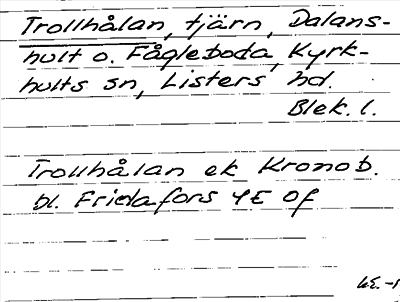 Trollhålan, tjärn, Dalans-
hult o. Fågleboda, Kyrk-
hults sn, Listers hd.
Blek. l.
Trollhålan ek Kronob.
bl. Fridafors 4E of